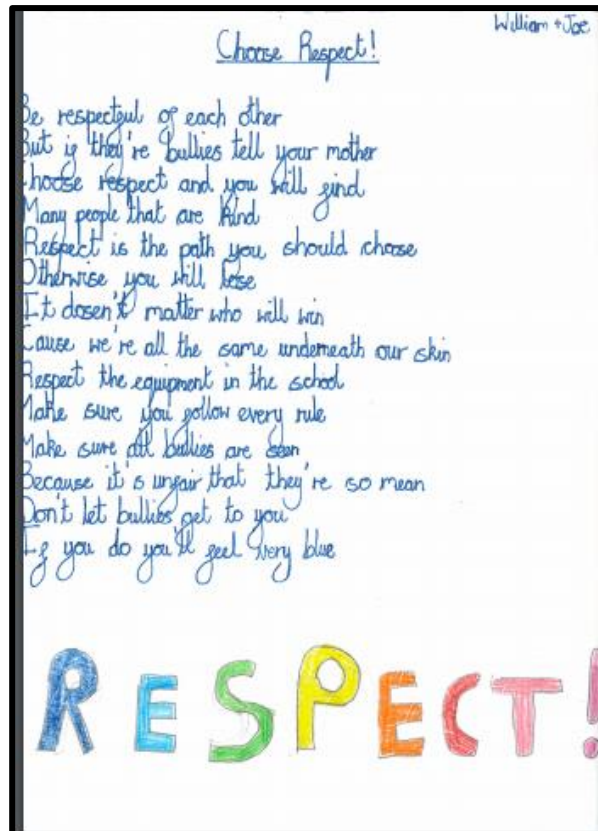 William + Joe
Choose Respect!
Be respectful of each other
But if they're bullies tell your mother
Choose respect and you will find
Many people that are kind
Respect is the path you should choose
Otherwise you will lose
It dosen't matter who will win
Cause we're all the same underneath our skin
Respect the equipment in the school
Make sure you follow every rule
Make sure all bullies are seen
Because it's unfair that they're so mean
Don't let bullies get to you
If you do you'll feel very blue
RESPECT!